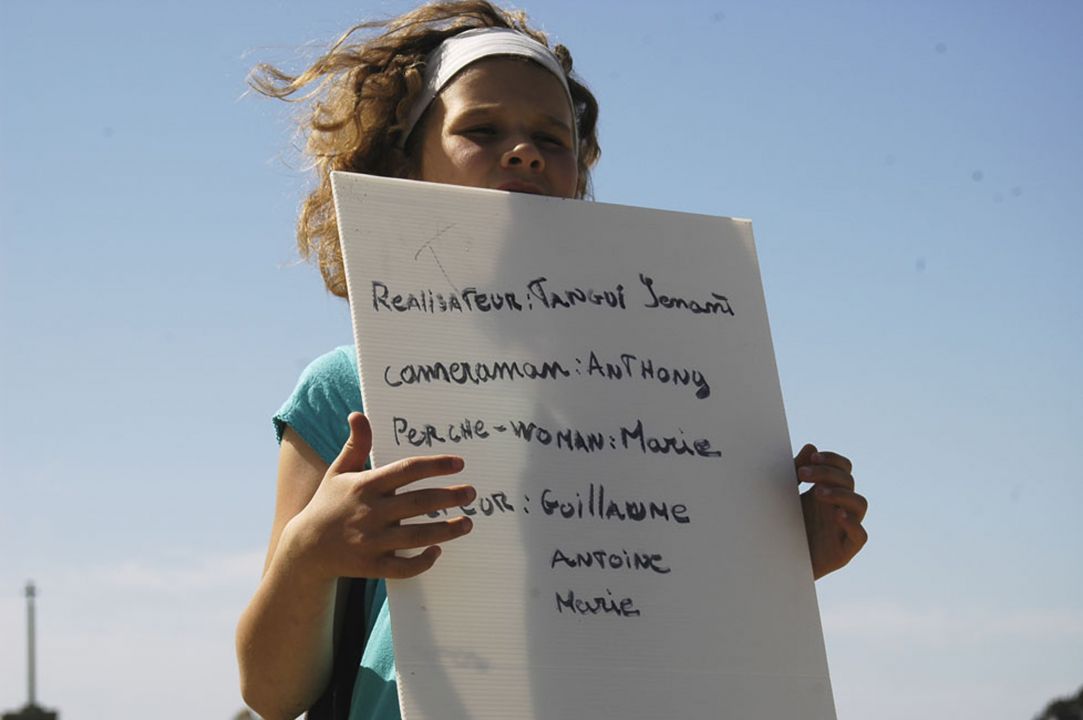 T
REALISATEUR: TANGUI
CAMERAMAN: ANTHONY
PERCHE-WOMAN: Marie
: GUILLAUME
ANTOINE
Marie